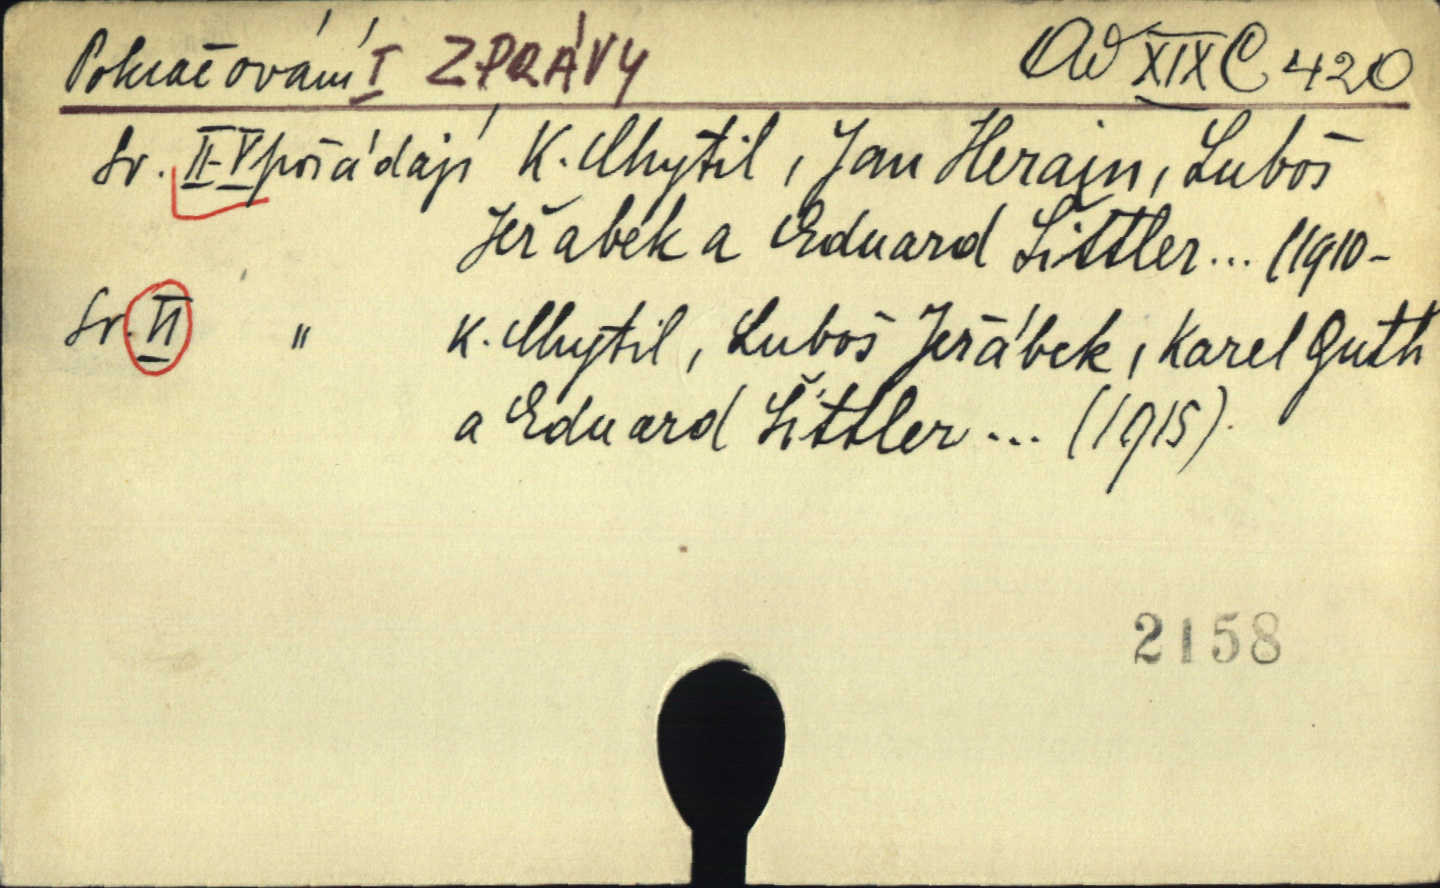 Pokračování I ZPRÁVY Ad XIX C 420
Sv. II-V pořádají K. Chytil, Jan Herain, Luboš
Jeřábek a Eduard Šittler... (1910-
Sv. VI " K. Chytil, Luboš Jeřábek, Karel Guth
a Eduard Šittler... (1915).
2158